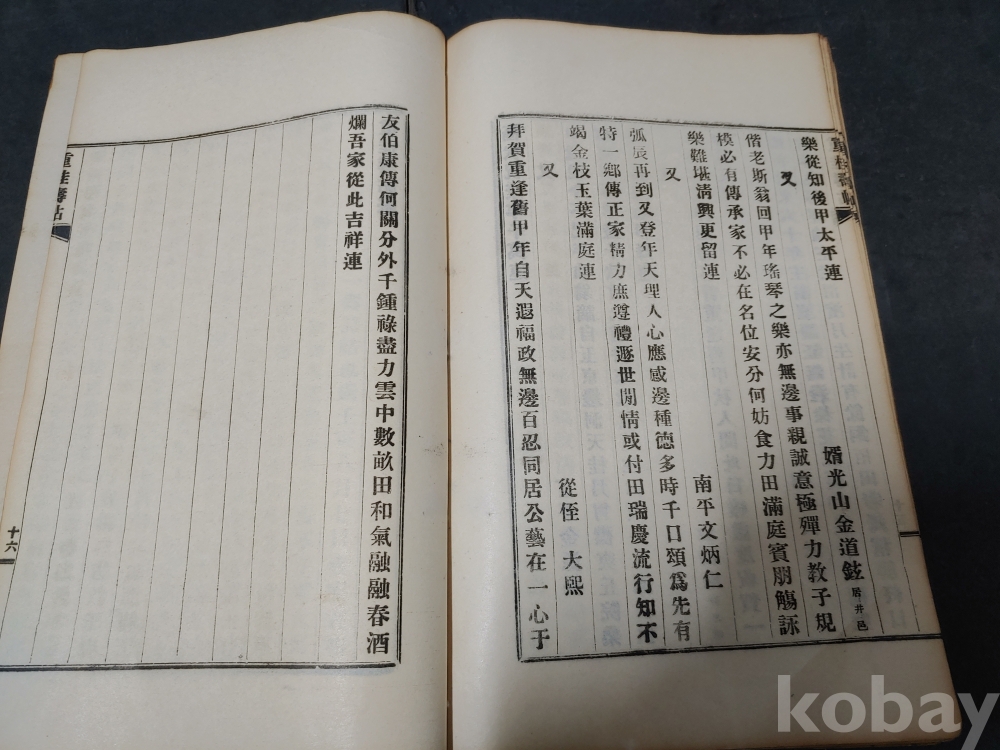 重桂壽帖
樂從知後甲太平連
又 婿光山金道鉉 居井邑
偕老斯翁回甲年瑤琴之樂亦無邊事親誠意極殫力教子規
模必有傳承家不必在名位安分何妨食力田滿庭賓朋觴詠
樂難堪清興更留連
又 南平文炳仁
弧辰再到又登年天理人心應感邊種德多時千口頌爲先有
特一鄉傳正家精力庶遵禮遯世閒情或付田瑞慶流行知不
竭金枝玉葉滿庭連
又 從侄 大熙
拜賀重逢舊甲年自天遐福政無邊百忍同居公藝在一心于
友伯康傳何關分外千鍾祿盡力雲中數畝田和氣融融春酒
爛吾家從此吉祥連
重桂壽帖
十六
kobay